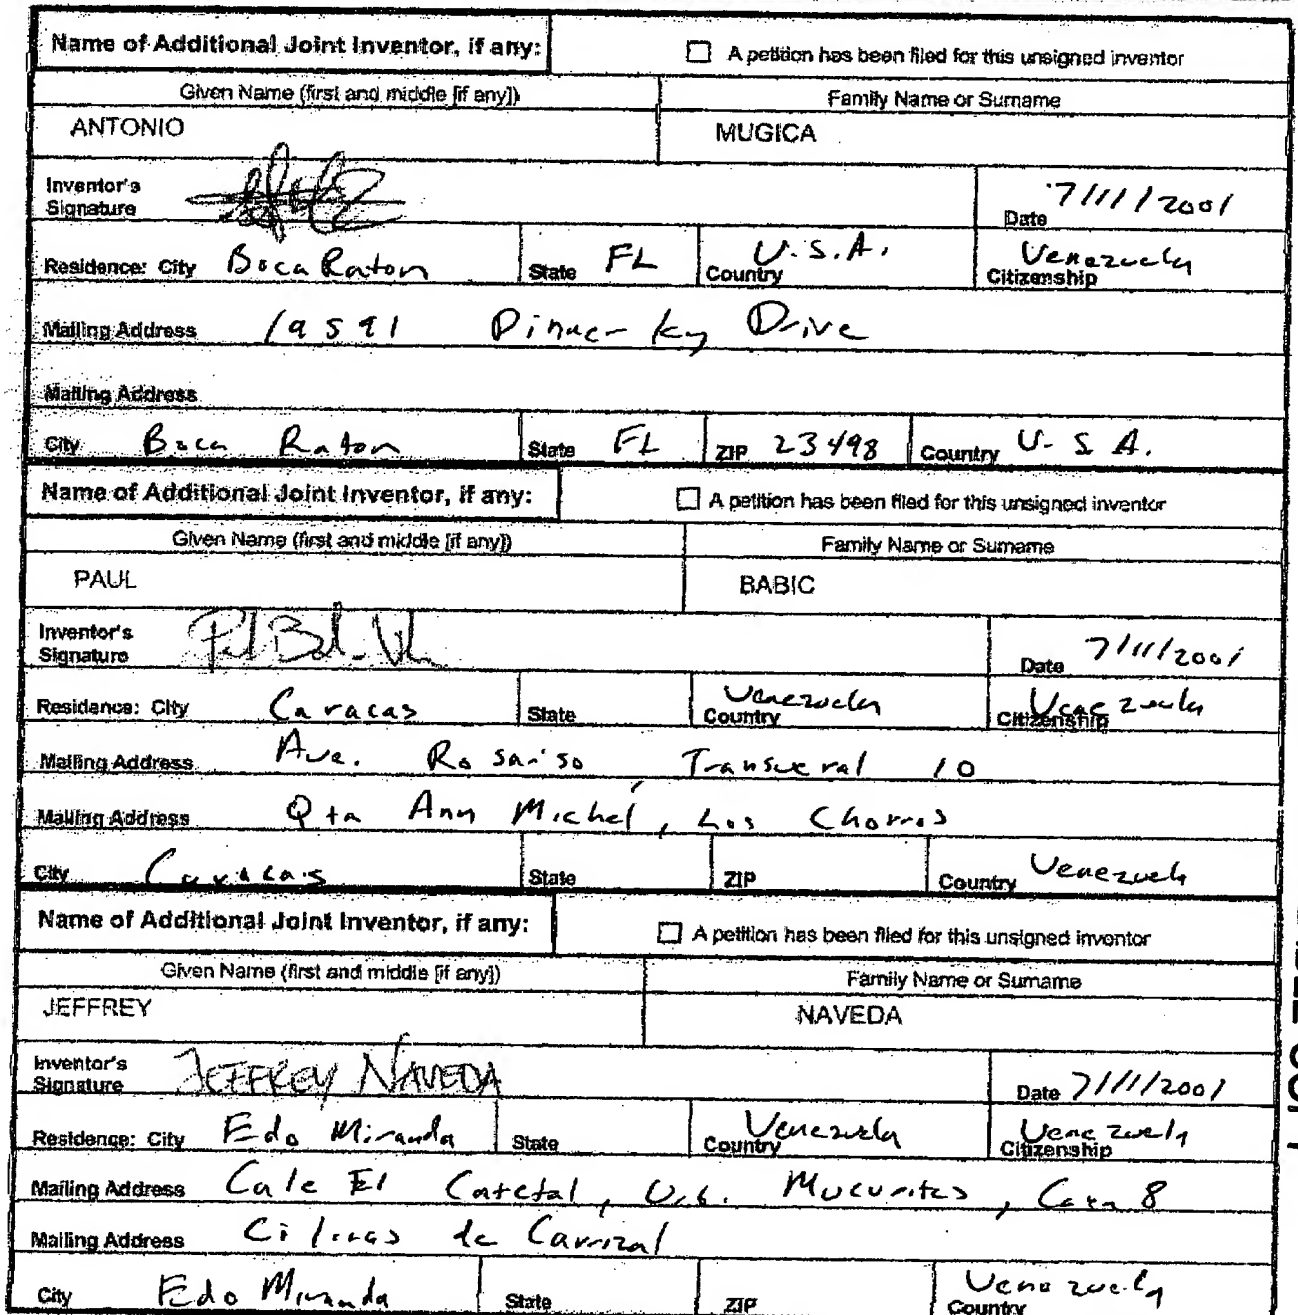 Name of Additional Joint Inventor, if any: A petition has been filed for this unsigned inventor
Given Name (first and middle [if any]) Family Name or Surname
ANTONIO MUGICA
Inventor's Signature Date 7/11/2001
Residence: City Boca Raton State FL Country U.S.A. Citizenship Venezuela
Mailing Address 19591 Dinner Key Drive
Mailing Address
City Boca Raton State FL ZIP 23498 Country U.S.A.
Name of Additional Joint Inventor, if any: A petition has been filed for this unsigned inventor
Given Name (first and middle [if any]) Family Name or Surname
PAUL BABIC
Inventor's Signature Date 7/11/2001
Residence: City Caracas State Country Venezuela Citizenship Venezuela
Mailing Address Ave. Rosariso Transveral 10
Mailing Address Qta Ann Michel, Los Chorros
City Caracas State ZIP Country Venezuela
Name of Additional Joint Inventor, if any: A petition has been filed for this unsigned inventor
Given Name (first and middle [if any]) Family Name or Surname
JEFFREY NAVEDA
Inventor's Signature JEFFREY NAVEDA Date 7/11/2001
Residence: City Edo Miranda State Country Venezuela Citizenship Venezuela
Mailing Address Cale El Cafetal, Urb. Mucuritas, Casa 8
Mailing Address Colinas de Carrizal
City Edo Miranda State ZIP Country Venezuela